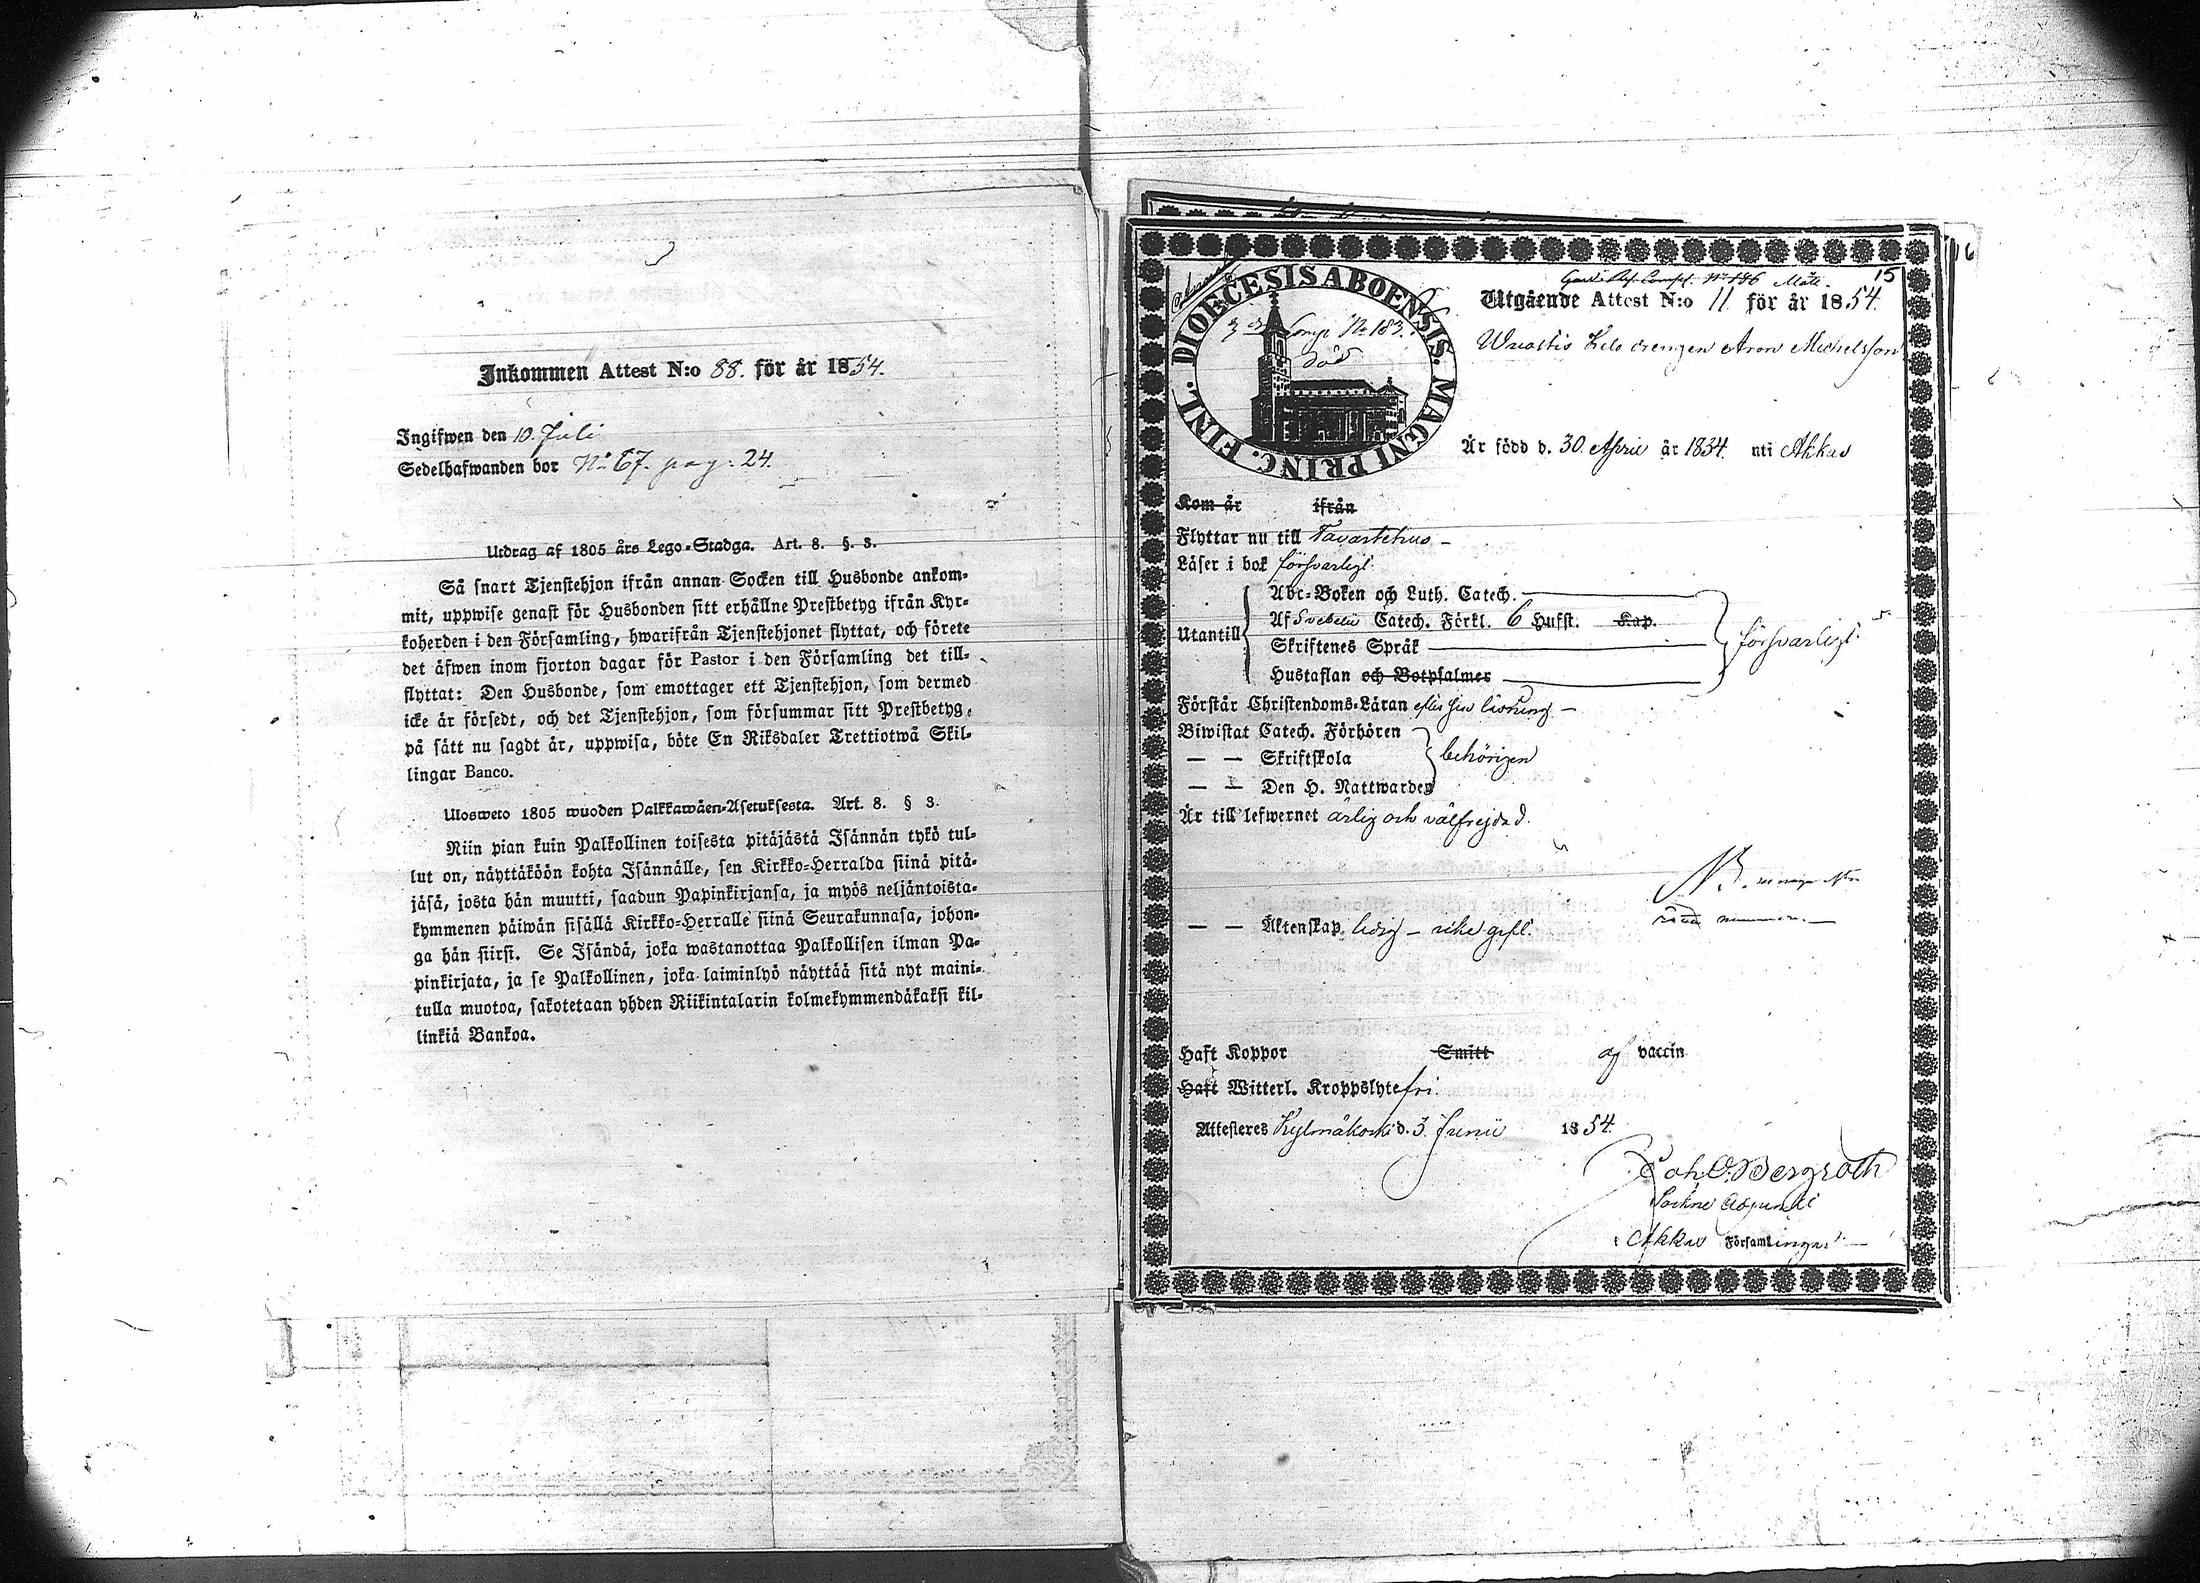 Inkommen Attest N:o 88. för år 1854.
Ingifwen den 10. Juli
Sedelhafwanden bor No 67. pag: 24.
Utdrag af 1805 års Lego-Stadga. Art. 8. §. 3.
Så snart Tjenstehjon ifrån annan Socken till Husbonde ankom-
mit, uppwise genast för Husbonden sitt erhållne Prestbetyg ifrån Kyr-
koherden i den Församling, hwarifrån Tjenstehjonet flyttat, och förete
det äfwen inom fjorton dagar för Pastor i den Församling det till-
flyttat: Den Husbonde, som emottager ett Tjenstehjon, som dermed
icke är försedt, och det Tjenstehjon, som försummar sitt Prestbetyg,
på sätt nu sagdt är, uppwisa, böte En Riksdaler Trettiotwå Skil-
lingar Banco.
Ulosweto 1805 wuoden Palkkawäen-Asetuksesta. Art. 8. § 3.
Niin pian kuin Palkollinen toisesta pitäjästä Isännän tykö tul-
lut on, näyttäköön kohta Isännälle, sen Kirkko-Herralda siinä pitä-
jäsä, josta hän muutti, saadun Papinkirjansa, ja myös neljäntoista-
kymmenen päiwän sisällä Kirkko-Herralle siinä Seurakunnasa, johon-
ga hän siirsi. Se Isändä, joka wastanottaa Palkollisen ilman Pa-
pinkirjata, ja se Palkollinen, joka laiminlyö näyttää sitä nyt maini-
tulla muotoa, sakotetaan yhden Riikintalarin kolmekymmendäkaksi kil-
linkiä Bankoa.
16
15
DIOECESIS ABOENSIS. MAGNI PRINC. FINL.
No 183.
död
No 196
Utgående Attest N:o 11 för år 1854.
drengen Aron Michelsson
Är född d. 30 April år 1834. uti Akkas
Kom år ifrån
Flyttar nu till Tavastehus -
Läser i bok försvarligt.
Utantill
Abc-Boken och Luth. Catech.
Af Svebelii Catech. Förkl. 6 Hufst. Kap.
Skriftenes Språk
Hustaflan och Botpsalmer
försvarligt.
Förstår Christendoms-Läran efter sin läsning -
Biwistat Catech. Förhören
— — Skriftskola
— — Den H. Nattwarden
behörigen
Är till lefwernet ärlig och välfrejdad.
NB.
— — Äktenskap ledig -
Haft Koppor Smitt af vaccin
Haft Witterl. Kroppslyte fri.
Attesteres Kylmäkoski d. 3. Junii 1854.
Joh. O. Bergroth
Sockne Adjunkt
Akkas Församlingar